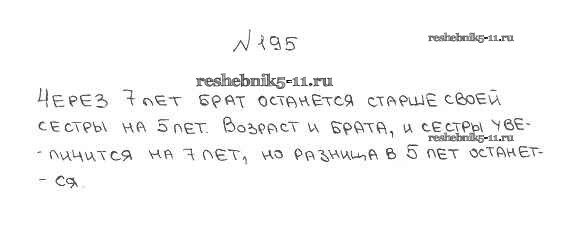 N195
reshebnik5-11.ru
reshebnik5-11.ru
Через 7 лет брат останется старше своей
сестры на 5 лет. Возраст и брата, и сестры уве-
reshebnik5-11.ru
-личится на 7 лет, но разница в 5 лет останет-
-ся.